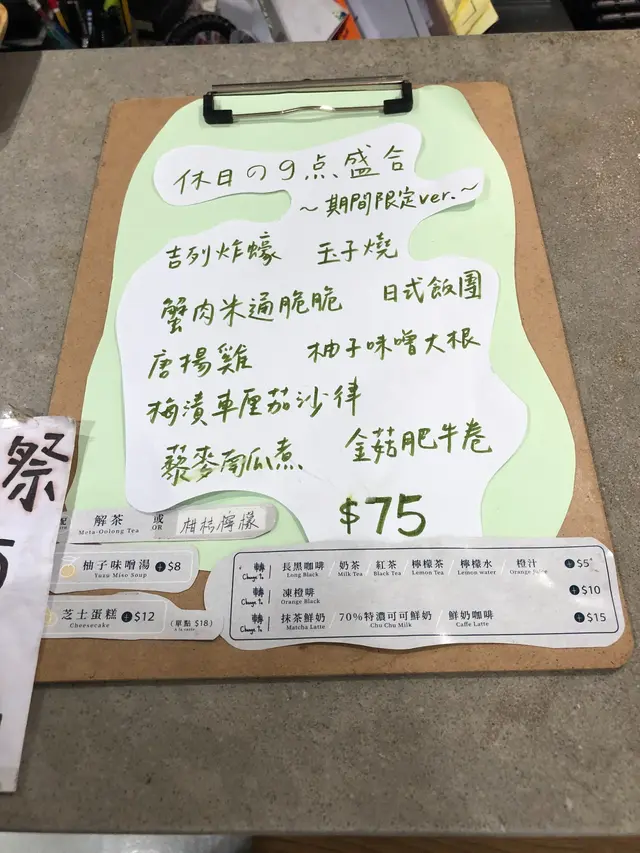 休日の9点盛合
～期間限定ver.～
吉列炸蠔 玉子燒
蟹肉米通脆脆 日式飯團
唐揚雞 柚子味噌大根
梅漬車厘茄沙律
藜麥南瓜煮 金菇肥牛卷
$75
祭
配 解茶 或 柑桔檸檬
Meta-Oolong Tea OR
柚子味噌湯 +$8
Yuzu Miso Soup
芝士蛋糕 +$12 (單點 $18)
Cheesecake à la carte
轉 長黑咖啡 / 奶茶 / 紅茶 / 檸檬茶 / 檸檬水 / 橙汁 +$5
Change To Long Black Milk Tea Black Tea Lemon Tea Lemon water Orange Juice
轉 凍橙啡 +$10
Change To Orange Black
轉 抹茶鮮奶 / 70%特濃可可鮮奶 / 鮮奶咖啡 +$15
Change To Matcha Latte Chu Chu Milk Caffe Latte